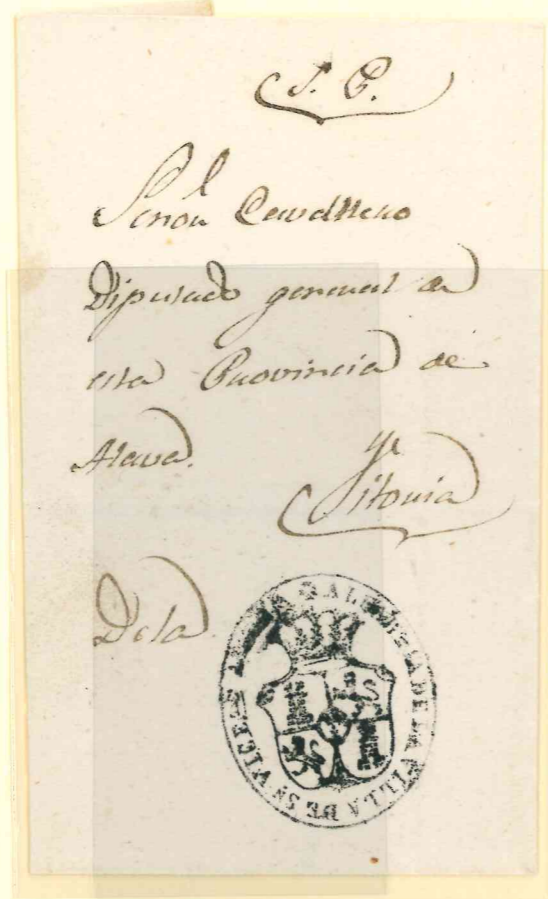 S. P.
Señor Cavallero
Diputado general de
esta Provincia de
Alava.
Vitoria
De la
ALCALDIA DE LA VILLA DE Sn VICENTE